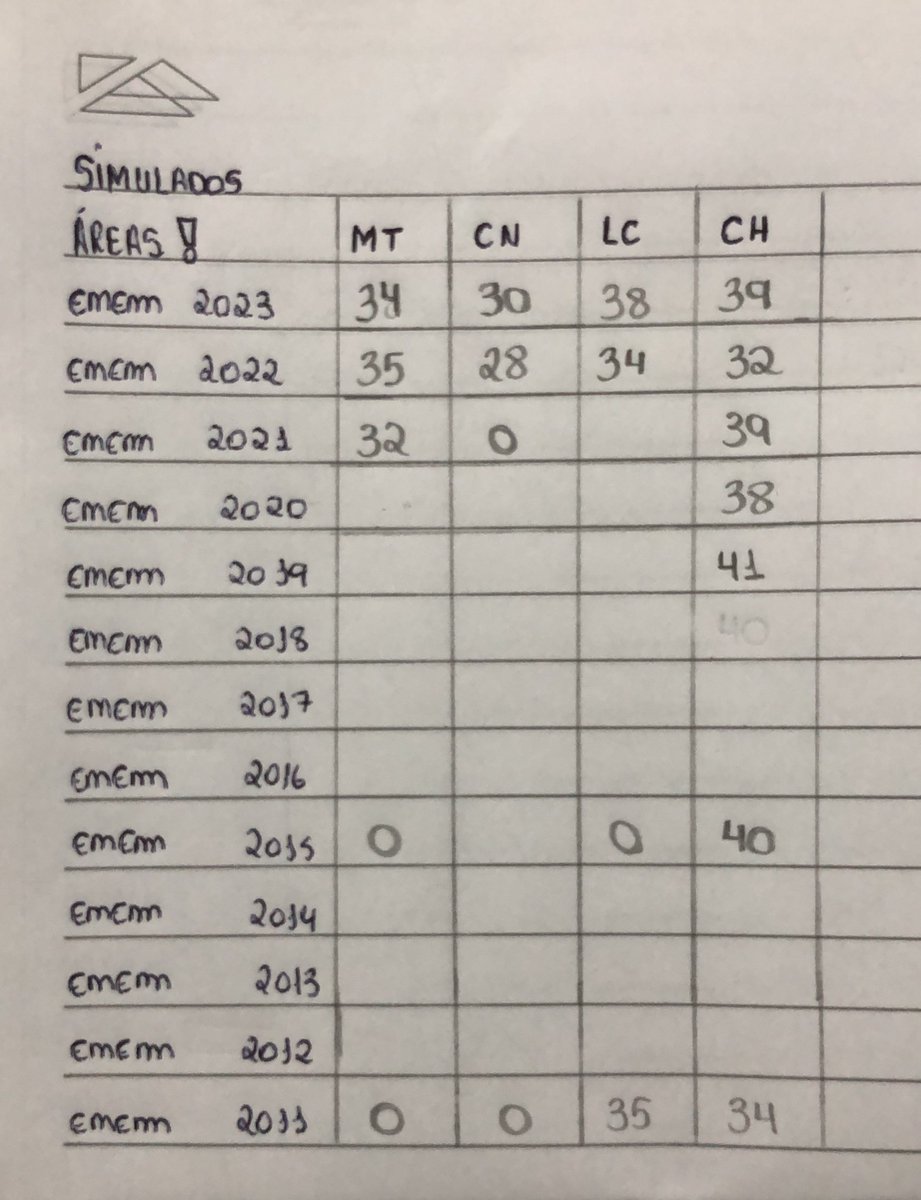 SIMULADOS
ÁREAS! MT CN LC CH
EMEM 2023 34 30 38 39
EMEM 2022 35 28 34 32
EMEM 2021 32 0 39
EMEM 2020 38
EMEM 2019 41
EMEM 2018 40
EMEM 2017
EMEM 2016
EMEM 2015 0 0 40
EMEM 2014
EMEM 2013
EMEM 2012
EMEM 2011 0 0 35 34